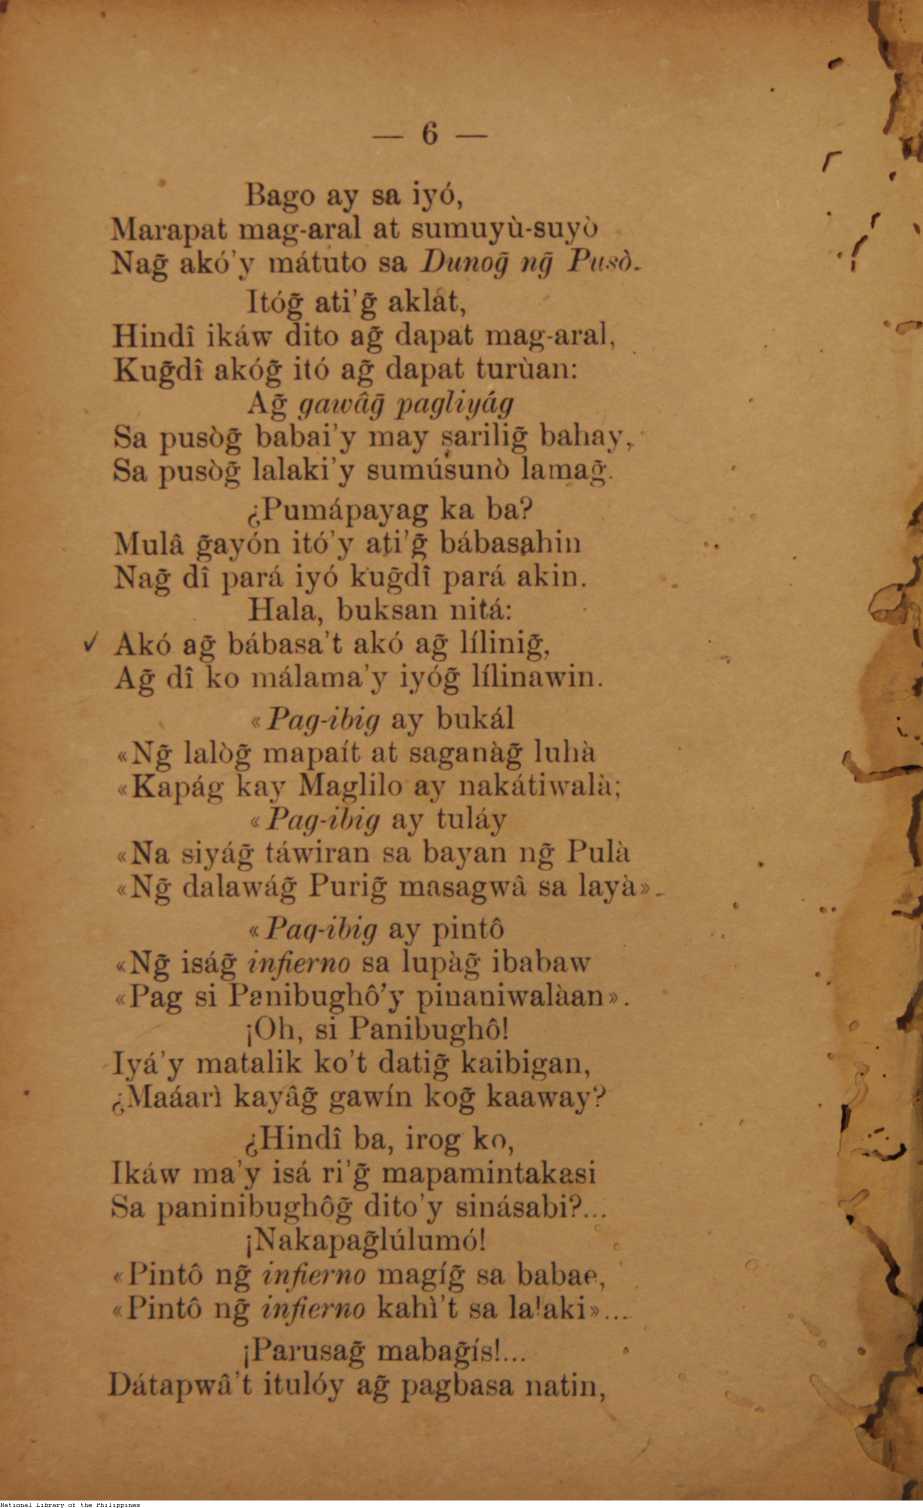 — 6 —
Bago ay sa iyó,
Marapat mag-aral at sumuyù-suyò
Nag̃ akó'y mátuto sa Dunog̃ ng̃ Pusò.
Itóg̃ ati'g̃ aklát,
Hindî ikáw dito ag̃ dapat mag-aral,
Kug̃dî akóg̃ itó ag̃ dapat turùan:
Ag̃ gawâg̃ pagliyág
Sa pusòg̃ babai'y may sarilig̃ bahay,
Sa pusòg̃ lalaki'y sumúsunò lamag̃.
¿Pumápayag ka ba?
Mulâ g̃ayón itó'y ati'g̃ bábasahin
Nag̃ dî pará iyó kug̃dî pará akin.
Hala, buksan nitá:
Akó ag̃ bábasa't akó ag̃ lílinig̃,
Ag̃ dî ko málama'y iyóg̃ lílinawin.
«Pag-ibig ay bukál
«Ng̃ lalòg̃ mapaít at saganàg̃ luhà
«Kapág kay Maglilo ay nakátiwalà;
«Pag-ibig ay tuláy
«Na siyág̃ táwiran sa bayan ng̃ Pulà
«Ng̃ dalawág̃ Purig̃ masagwâ sa layà».
«Pag-ibig ay pintô
«Ng̃ iság̃ infierno sa lupàg̃ ibabaw
«Pag si Panibughô'y pinaniwalàan».
¡Oh, si Panibughô!
Iyá'y matalik ko't datig̃ kaibigan,
¿Maáarì kayâg̃ gawín kog̃ kaaway?
¿Hindî ba, irog ko,
Ikáw ma'y isá ri'g̃ mapamintakasi
Sa paninibughôg̃ dito'y sinásabi?...
¡Nakapag̃lúlumó!
«Pintô ng̃ infierno magíg̃ sa babae,
«Pintô ng̃ infierno kahì't sa lalaki»...
¡Parusag̃ mabag̃ís!...
Dátapwâ't itulóy ag̃ pagbasa natin,
National Library of the Philippines